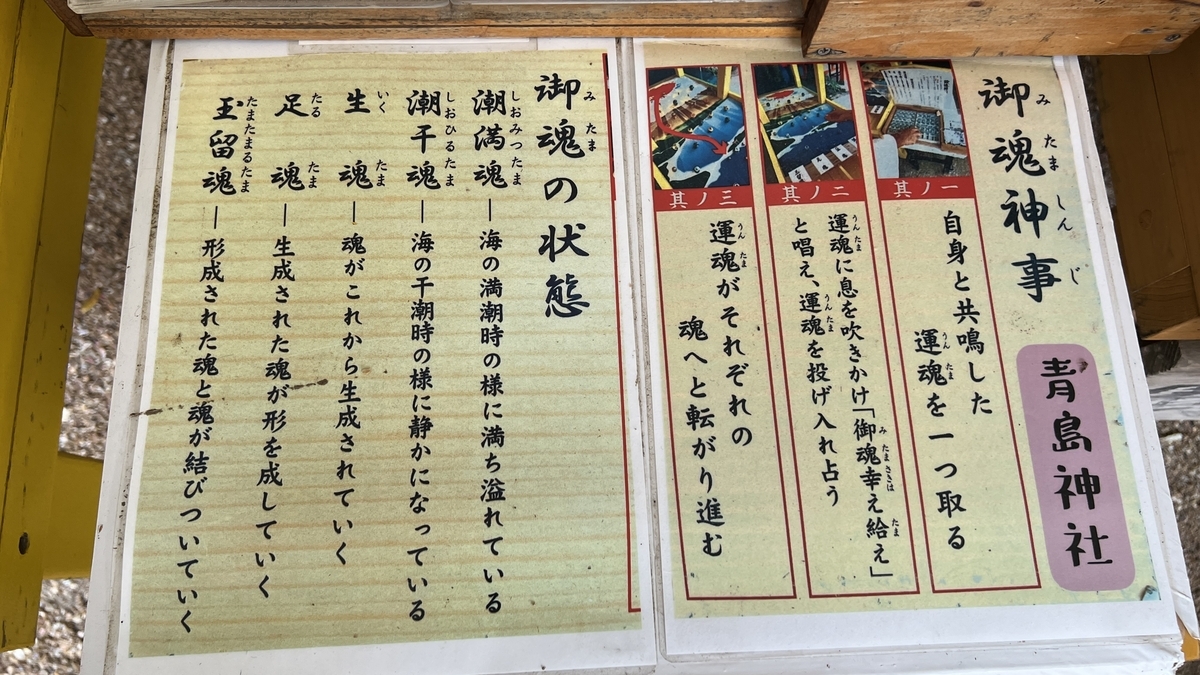 御魂神事
みたましんじ
青島神社
其ノ一
自身と共鳴した
運魂を一つ取る
うんたま
其ノ二
運魂に息を吹きかけ「御魂幸え給え」
うんたま
みたまさきは
たま
と唱え、運魂を投げ入れ占う
うんたま
其ノ三
運魂がそれぞれの
うんたま
魂へと転がり進む
御魂の状態
みたま
潮満魂―海の満潮時の様に満ち溢れている
しおみつたま
潮干魂―海の干潮時の様に静かになっている
しおひるたま
生魂―魂がこれから生成されていく
いくたま
足魂―生成された魂が形を成していく
たるたま
玉留魂―形成された魂と魂が結びついていく
たまたまるたま